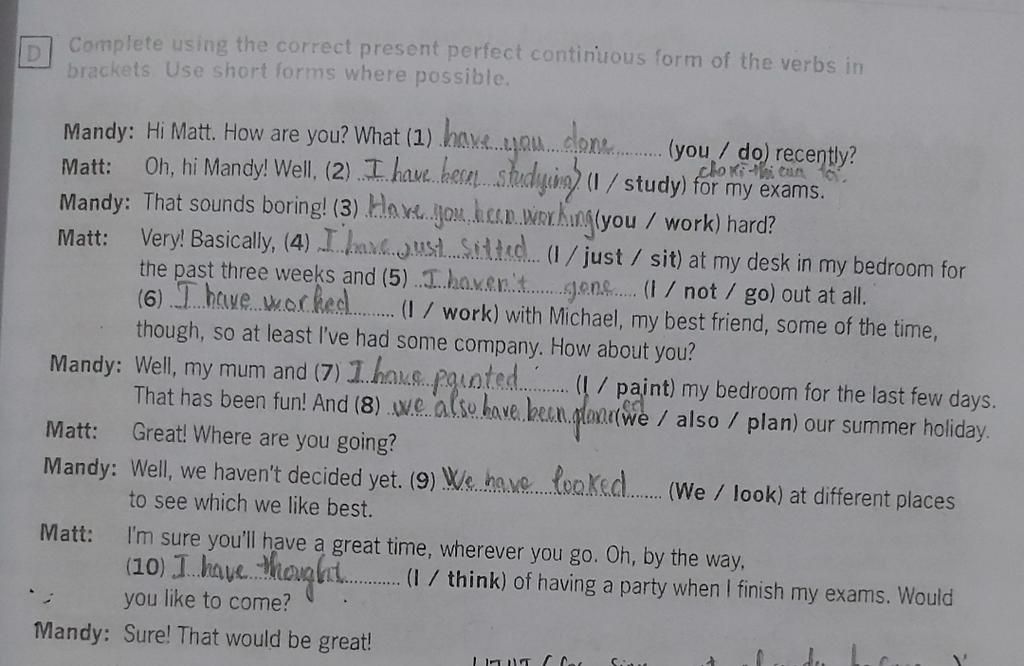 D Complete using the correct present perfect continuous form of the verbs in
brackets. Use short forms where possible.
Mandy: Hi Matt. How are you? What (1) have you done (you / do) recently?
Matt: Oh, hi Mandy! Well, (2) I have been studying (I / study) for my exams.
Mandy: That sounds boring! (3) Have you been working (you / work) hard?
Matt: Very! Basically, (4) I have just sitted (I / just / sit) at my desk in my bedroom for
the past three weeks and (5) I haven't gone (I / not / go) out at all.
(6) I have worked (I / work) with Michael, my best friend, some of the time,
though, so at least I've had some company. How about you?
Mandy: Well, my mum and (7) I have painted (I / paint) my bedroom for the last few days.
That has been fun! And (8) we also have been planed (we / also / plan) our summer holiday.
Matt: Great! Where are you going?
Mandy: Well, we haven't decided yet. (9) We have looked (We / look) at different places
to see which we like best.
Matt: I'm sure you'll have a great time, wherever you go. Oh, by the way,
(10) I have thought (I / think) of having a party when I finish my exams. Would
you like to come?
Mandy: Sure! That would be great!